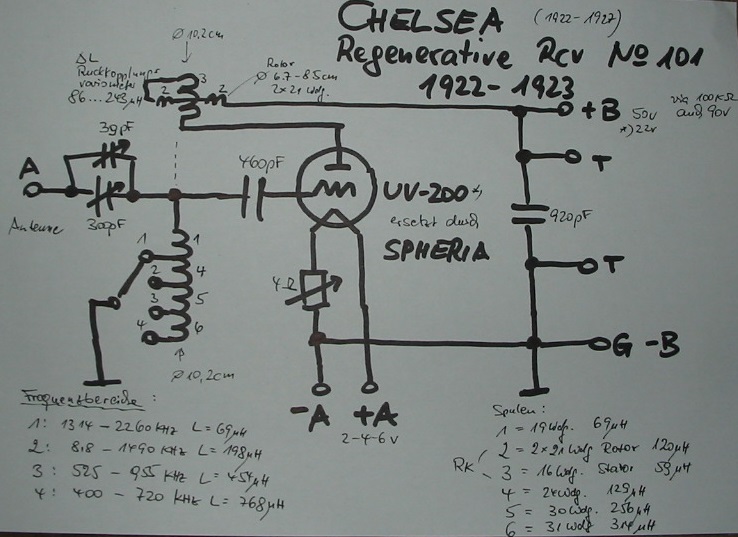 CHELSEA (1922-1927)
Regenerative Rcv No 101
1922-1923
Ø 10,2cm
ΔL
Rückkopplungs
variometer
86...243µH
3
2
2
Rotor
Ø 6.7-8.5cm
2x21 Wdg.
+B 50V via 100KΩ
auch 90V
*) 22V
39pF
A
Antenne
300pF
460pF
UV-200
ersetzt durch
SPHERIA
T
920pF
T
1
1
2
4
3
5
4
6
4Ω
Ø 10,2cm
G -B
-A +A
2-4-6V
Frequenzbereiche:
1: 1314-2260 KHz L=69µH
2: 818-1490 KHz L=198µH
3: 525-955 KHz L=454µH
4: 400-720 KHz L=768µH
Spulen:
1 = 19 Wdg. 69µH
RK 2 = 2x21 Wdg Rotor 120µH
3 = 16 Wdg. Stator 59µH
4 = 24 Wdg. 129µH
5 = 30 Wdg. 256µH
6 = 31 Wdg 314µH